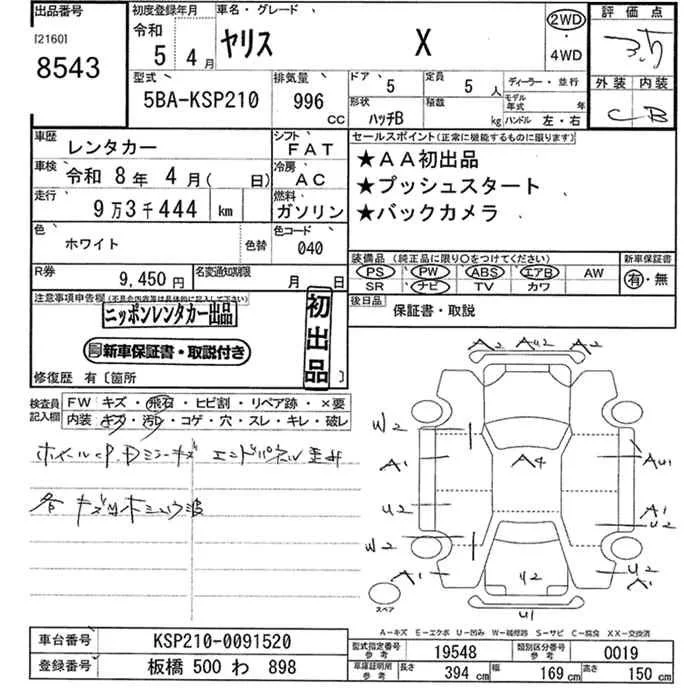 出品番号 初度登録年月 車名・グレード 評価点
[2160] 令和 ヤリス X 2WD
8543 5年 4月 4WD 3.5
型式 排気量 ドア 5 定員 5人 ディーラー・並行 外装 内装
5BA-KSP210 996 CC 形状 ハッチB 積載 kg モデル年式 年 ハンドル 左・右 C B
車歴 レンタカー シフト FAT セールスポイント(正常に機能するものに限ります)
車検 令和 8年 4月( 日) 冷房 AC ★AA初出品
走行 9万3千444 km 燃料 ガソリン ★プッシュスタート
★バックカメラ
色 ホワイト 色替 色コード 040
装備品(純正品に限り○をつけてください) 新車保証書
R券 9,450円 名変通知期限 月 日 PS PW ABS エアB AW 有・無
SR ナビ TV カワ
注意事項申告欄(不具合内容等は具体的に記入して下さい) 初出品 後日品 保証書・取説
ニッポンレンタカー出品
新車保証書・取説付き
修復歴 有〔箇所 〕
検査員記入欄 FW キズ・飛石・ヒビ割・リペア跡・×要
内装 キズ・汚れ・コゲ・穴・スレ・キレ・破レ
ホイールCP.Dミラーキズ エンドパネル歪み
各キズ凹
A2 AU2 A2
W2
A4
A1 AU1
U2 A1
U2
W2
A1 U2 U2
A1
U1
スペア
A-キズ E-エクボ U-凹み W-補修跡 S-サビ C-腐食 XX-交換済
車台番号 KSP210-0091520 型式指定番号 参考 19548 類別区分番号 参考 0019
登録番号 板橋 500 わ 898 車庫証明用 参考 長さ 394 cm 幅 169 cm 高さ 150 cm